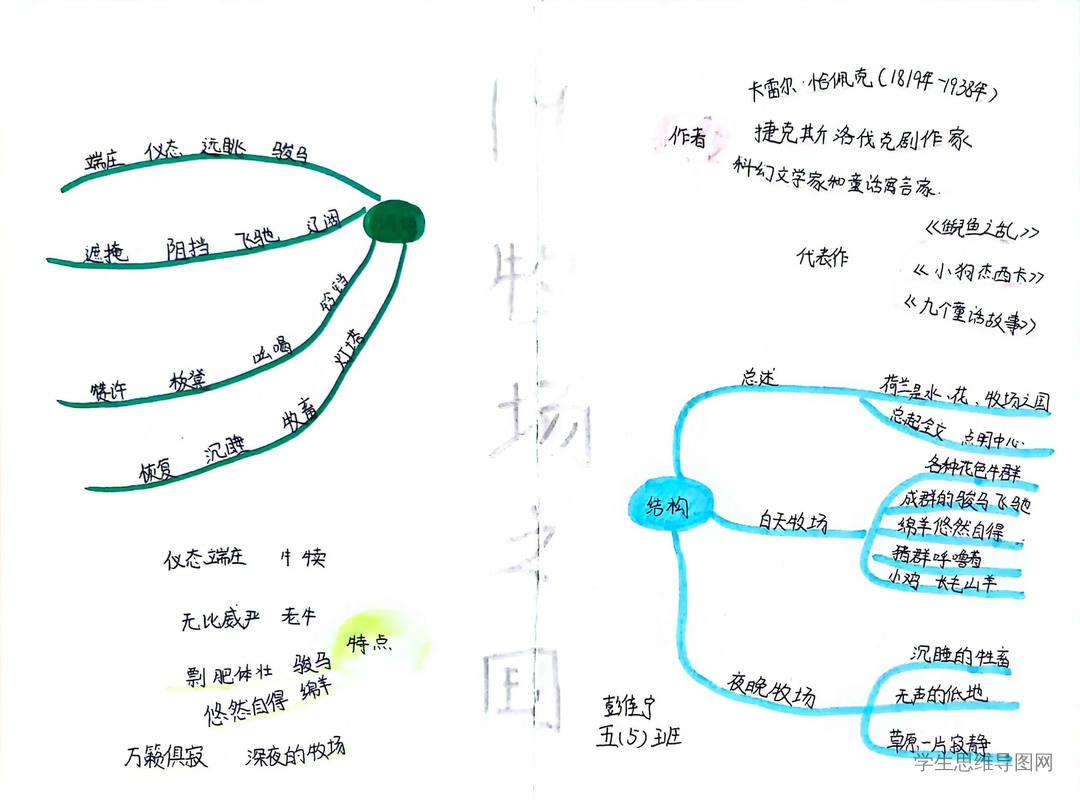 端庄 仪态 远眺 骏马
遮掩 阻挡 飞驰 辽阔
赞许 板凳 吆喝 铃铛
恢复 沉睡 牧畜 灯塔
仪态端庄 牛犊
无比威严 老牛
特点
剽肥体壮 骏马
悠然自得 绵羊
万籁俱寂 深夜的牧场
牧场之国
作者
卡雷尔·恰佩克(1819年-1938年)
捷克斯洛伐克剧作家
科幻文学家和童话寓言家.
代表作
《鲵鱼之乱》
《小狗杰西卡》
《九个童话故事》
结构
总述
荷兰是水、花、牧场之国
总起全文 点明中心
白天牧场
各种花色牛群
成群的骏马飞驰
绵羊悠然自得
猪群呼噜着
小鸡 长毛山羊
夜晚牧场
沉睡的牲畜
无声的低地
草原一片寂静
彭佳宁
五(5)班
学生思维导图网